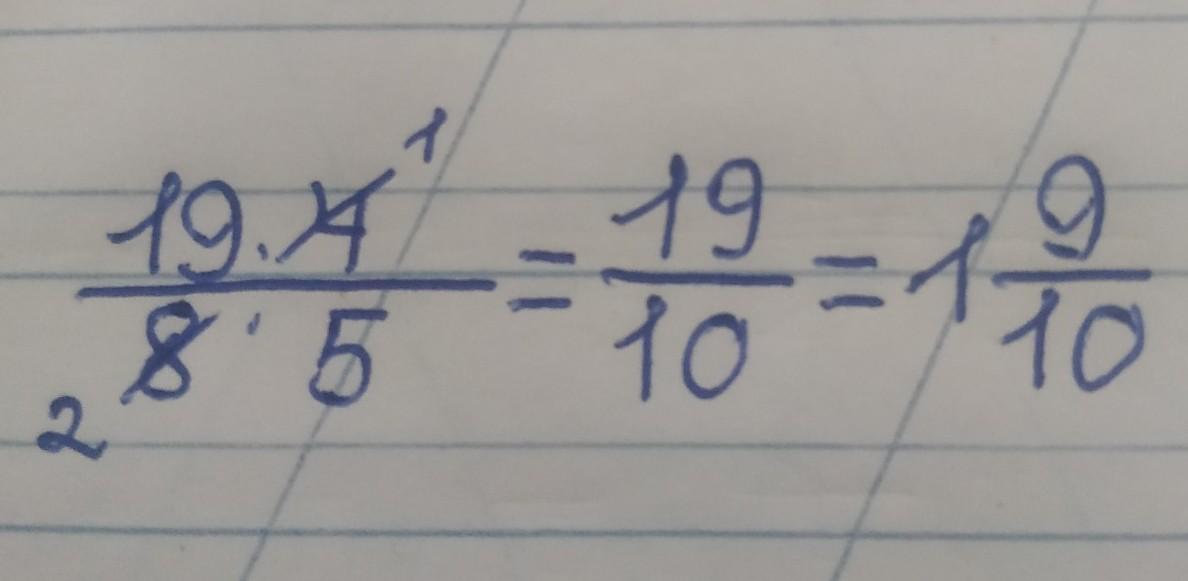 \frac{19 \cdot \cancel{4}^{1}}{_{2}\cancel{8} \cdot 5} = \frac{19}{10} = 1\frac{9}{10}